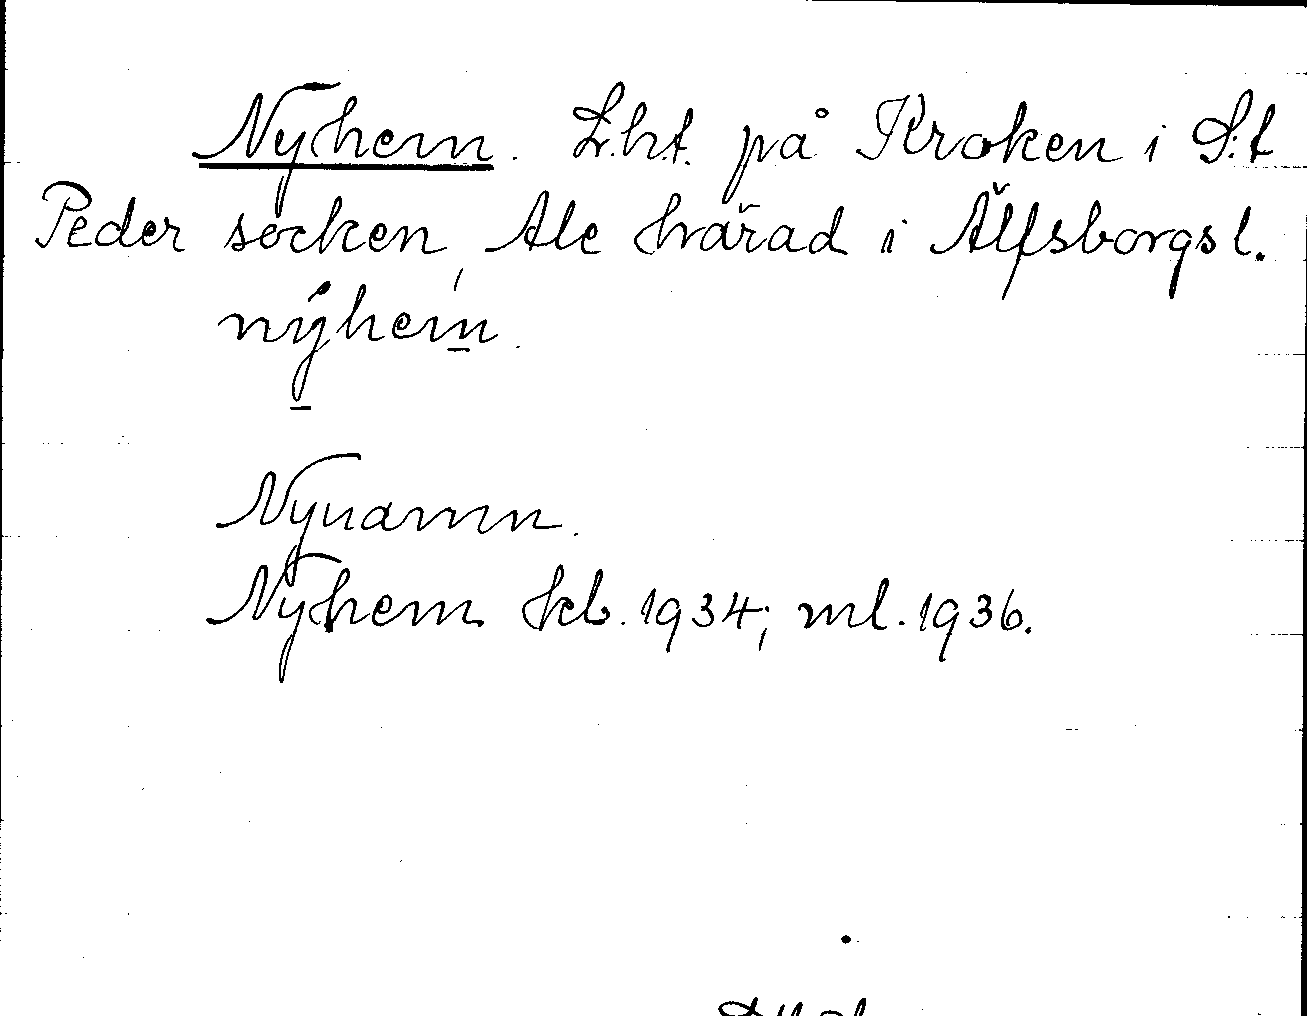 Nyhem. L.ht. på Kroken i S:t
Peder socken, Ale härad i Älfsborgs l.
nýhem.
Nynamn.
Nyhem kb. 1934; ml. 1936.